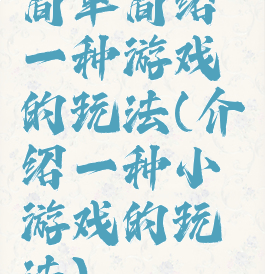 简单简绍
一种游戏
的玩法(介
绍一种小
游戏的玩
法)